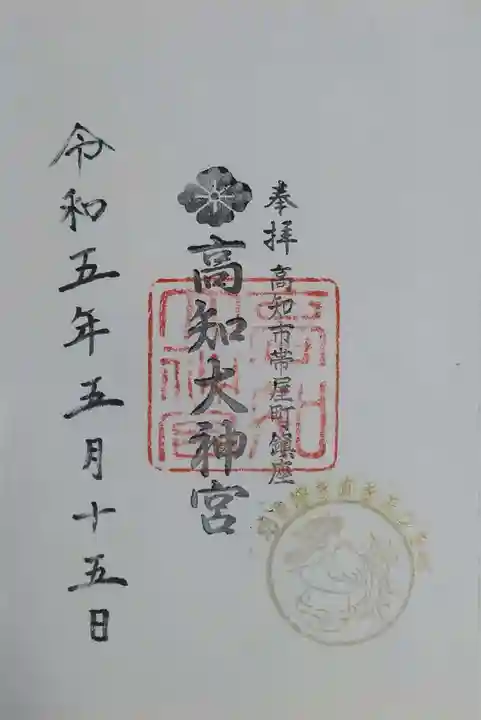 奉拝
高知市帯屋町鎮座
高知大神宮
令和五年五月十五日